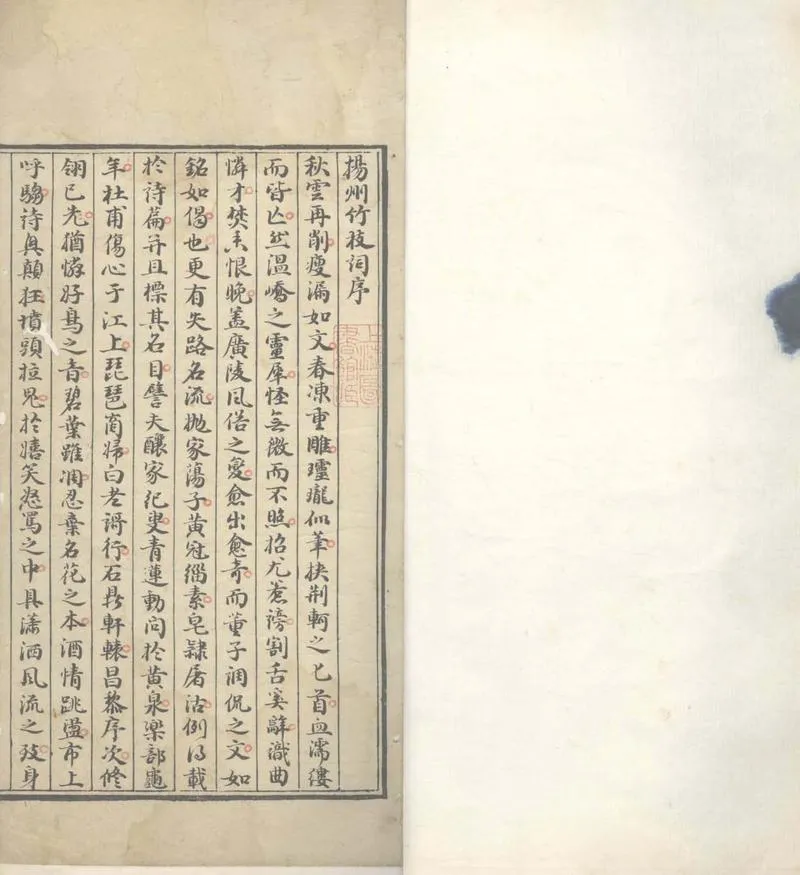 揚州竹枝詞序
秋雲再削瘦漏如文春凍重雕瓏瓏似筆挾荆軻之匕首血濡縷
而皆亡然溫嶠之靈犀怪無微而不照招尤惹謗割舌奚辭識曲
憐才焚香恨晚盖廣陵風俗之變愈出愈奇而董子調侃之文如
銘如偈也更有失路名流抛家蕩子黃冠緇素皂隸屠沽例得載
於詩篇并且標其名目譬夫釀家紀叟青蓮動問於黃泉樂部龜
年杜甫傷心于江上琵琶商婦白老歌行石鼎軒轅昌黎序次修
翎已禿猶憐好鳥之音碧葉雖凋忍棄名花之本酒情跳盪市上
呼騶詩興顛狂墳頭拉鬼於嬉笑怒罵之中具瀟洒風流之致身